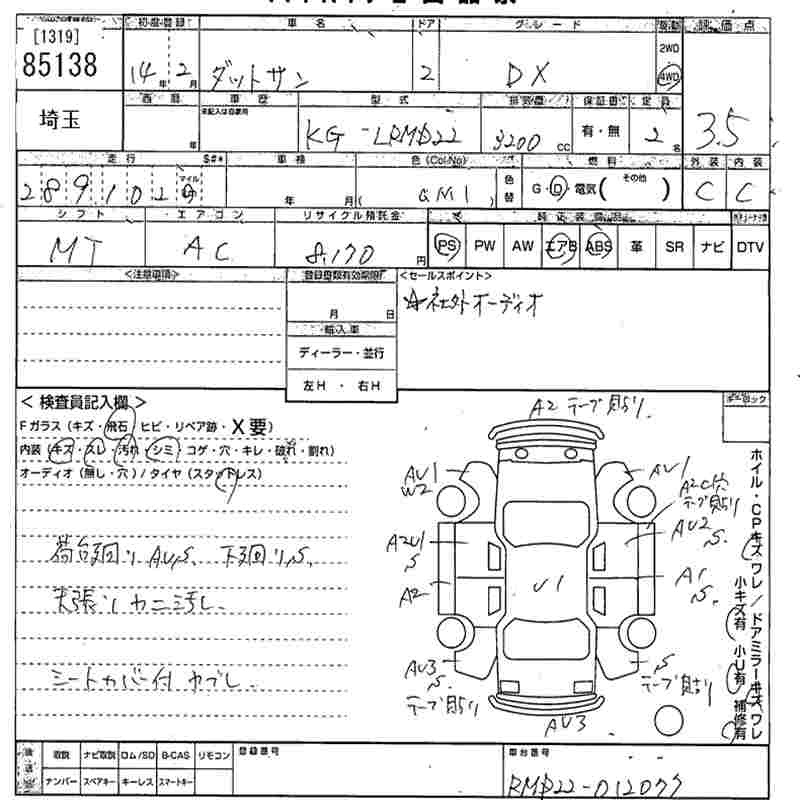 [1319]
85138
埼玉
初度登録
14年2月
車名
ダットサン
ドア
2
グレード
DX
駆動
2WD
4WD
評価点
3.5
西暦
年
車歴
未記入は自家用
型式
KG-LRMD22
排気量
3200cc
保証書
有・無
定員
2名
走行
289102
マイル
車検
年 月
色(ColNo)
( QM1 )
色替
燃料
G・D・電気( その他 )
外装
C
内装
C
シフト
MT
エアコン
AC
リサイクル預託金
8,170円
純正装備品
PS PW AW エアB ABS 革 SR ナビ DTV
<注意事項>
登録書類有効期限
月 日
輸入車
ディーラー・並行
左H・右H
<セールスポイント>
☆社外オーディオ
<検査員記入欄>
Fガラス(キズ・飛石・ヒビ・リペア跡・X要)
内装(キズ・スレ・汚れ・シミ・コゲ・穴・キレ・破れ・割れ)
オーディオ(無し・穴)/タイヤ(スタッドレス)
荷台廻りAU,S、下廻りS。
天張り汚し。
シートカバー付ヤブレ。
A2 テープ貼り。
AU1
W2
AU1
A2C穴
テープ貼り
A2U1
S
AU2
S。
A2
U1
A1
S。
AU3
S。
テープ貼り
S
テープ貼り
AU3
ホイル・CPキズワレ/ドアミラーキズワレ
小キズ有 小U有 補修有
取説 ナビ取説 ロム/SD B-CAS リモコン
ナンバー スペアキー キーレス スマートキー
登録番号
車台番号
RMD22-012077